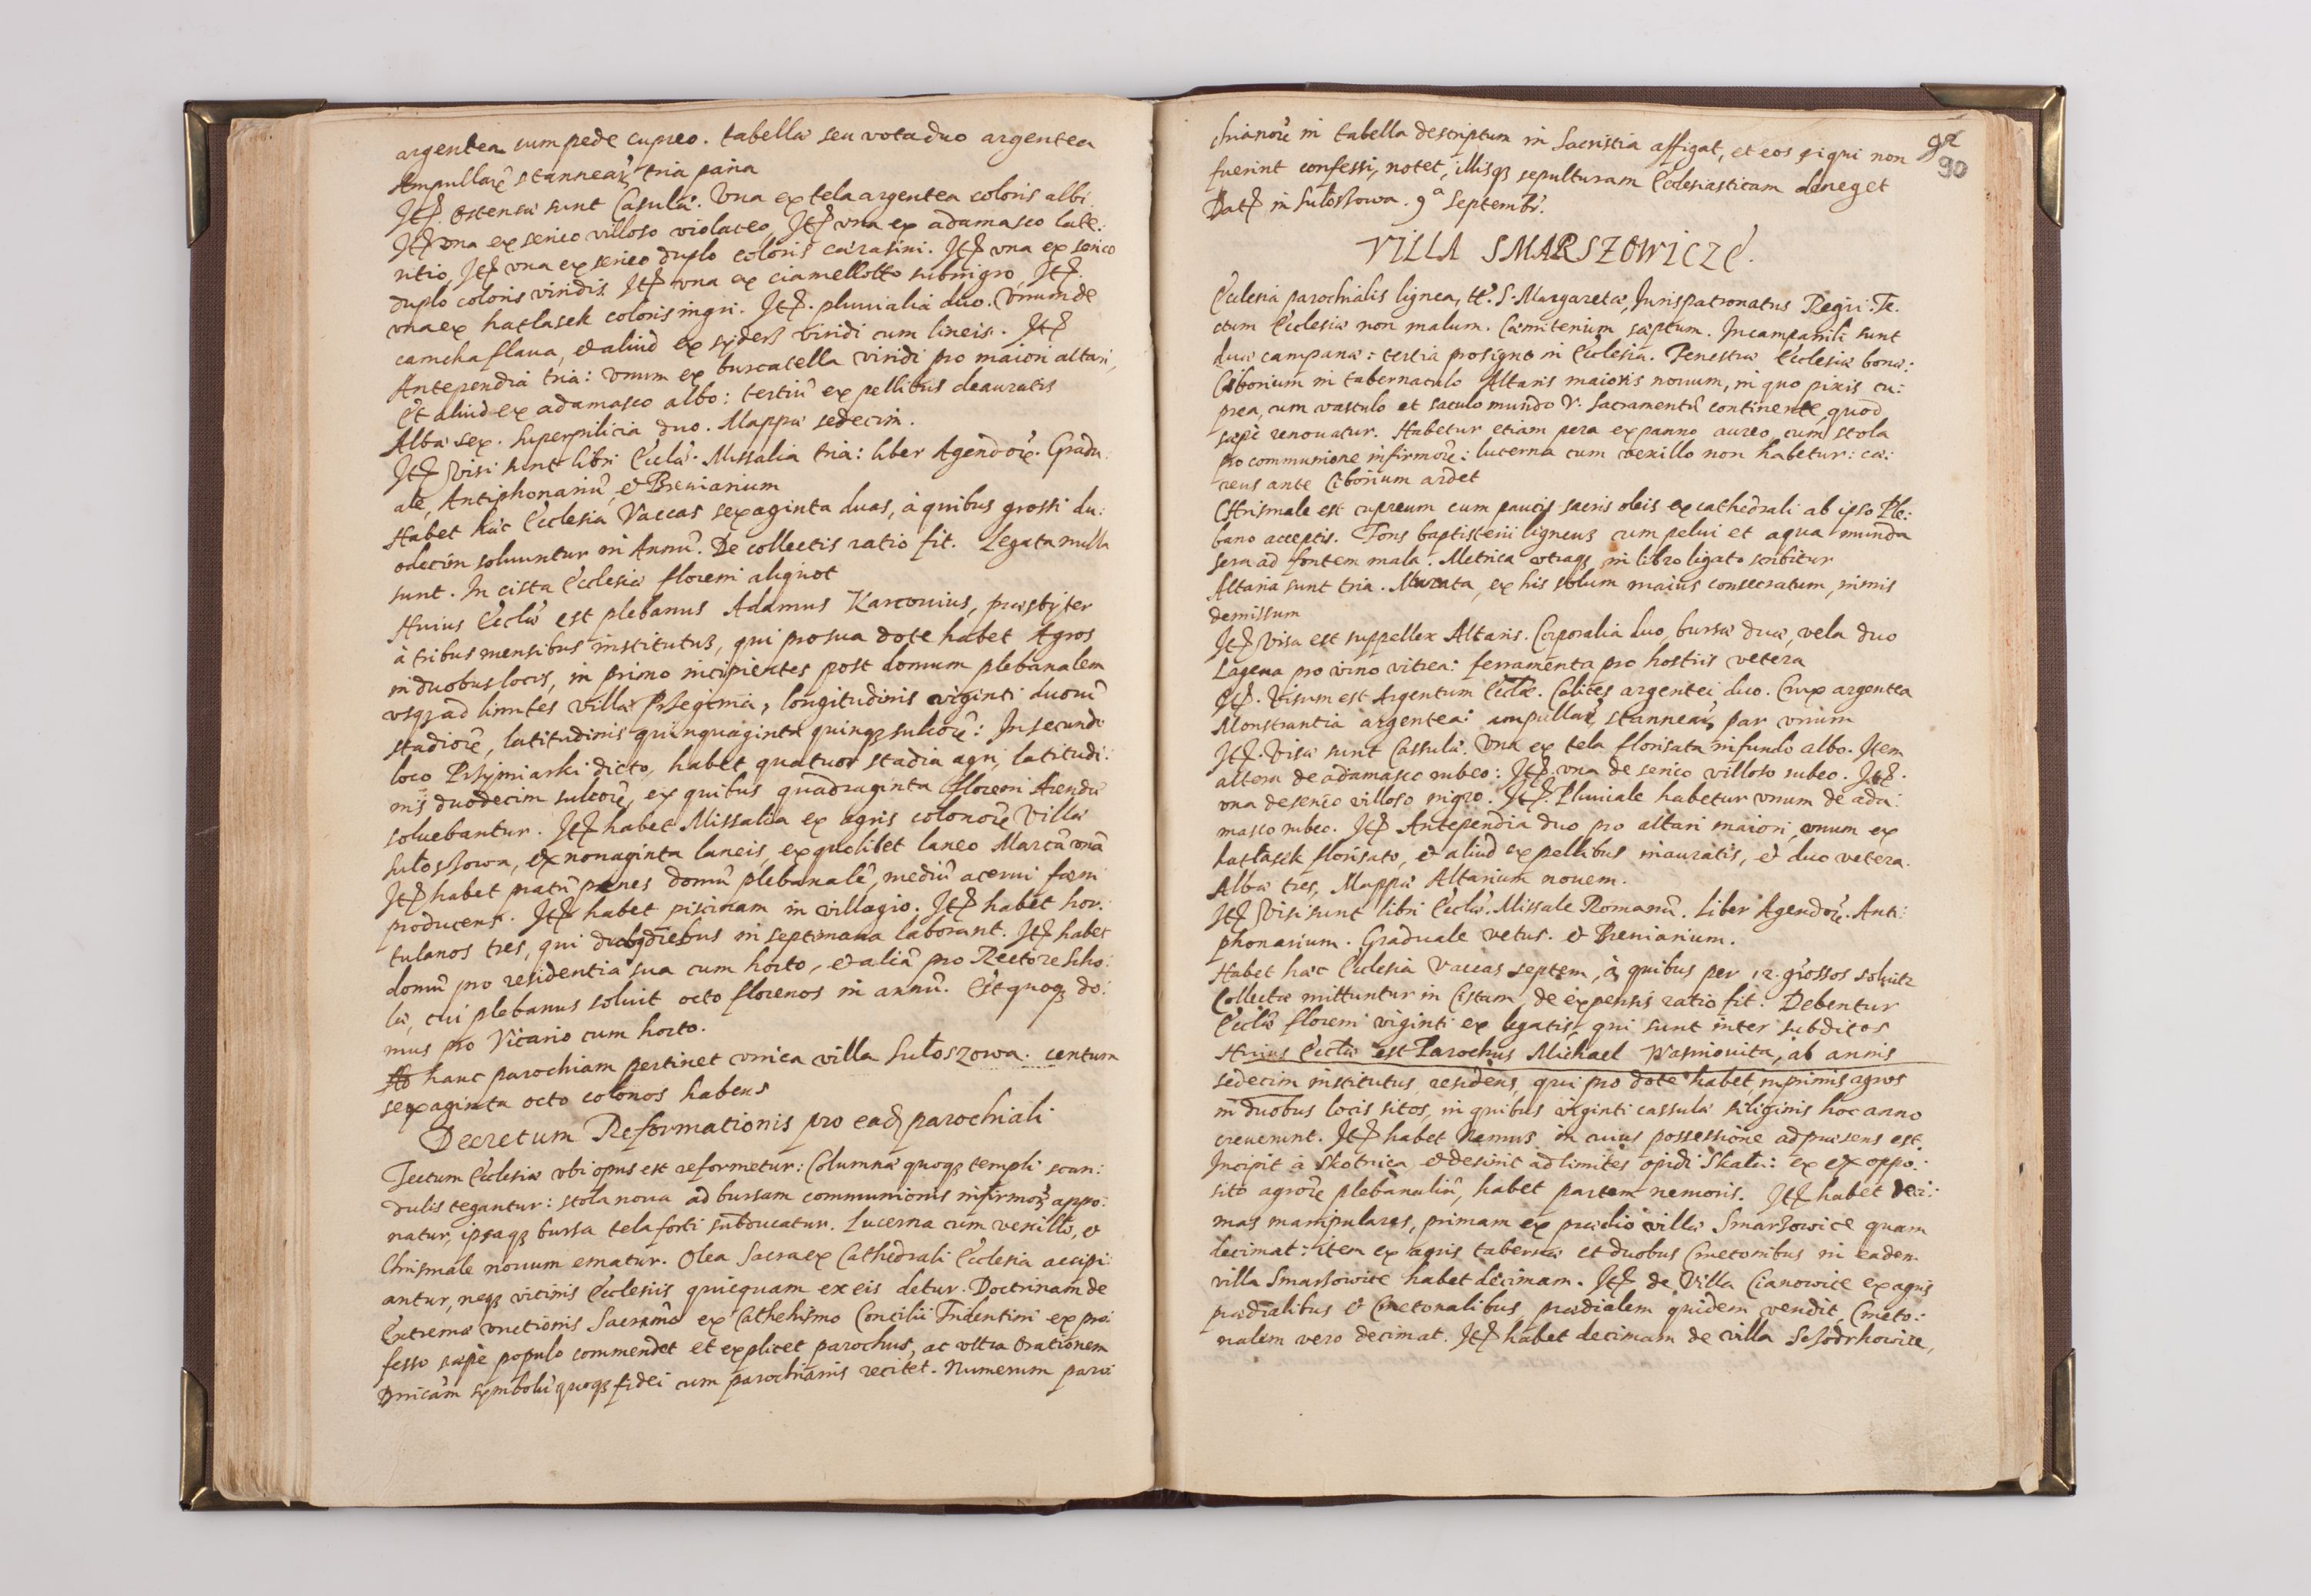 argentea cum pede cupreo. tabellæ seu vota duo argentea
Ampullarũ stannearũ tria paria
Itẽ ostensæ sunt Casulæ. Vna ex tela argentea coloris albi.
Itẽ vna ex serico villoso violaceo, Itẽ vna ex adamasco late:
ritio, Itẽ vna ex serico duplo coloris carasini. Itẽ vna ex serico
duplo coloris viridis. Itẽ vna ex ciamellotto subnigro, Itẽ.
vna ex hatlasek coloris nigri. Itẽ. pluuialia duo. Vnum de
camcha flaua, et aliud ex viridi cum lineis. Itẽ
Antependia tria: vnum ex burcatella viridi pro maiori altari,
Et aliud ex adamasco albo: tertiũ ex pellibus deauratis
Albæ sex. Superpilicia duo. Mappæ sedecim.
Itẽ Visi sunt libri Ecclæ. Missalia tria: liber Agendorũ. Gradu:
ale, Antiphonariũ, et Breuiarium
Habet hæc Ecclesia Vaccas sexaginta duas, à quibus grossi du:
odecim soluuntur in Annũ. De collectis ratio fit. Legata nulla
sunt. In cista Ecclesiæ floreni aliquot
Huius Ecclæ est plebanus Adamus Karconius, præsbyter
à tribus mensibus institutus, qui pro sua dote habet Agros
in duobus locis, in primo incipientes post domum plebanalem
vsq; ad limites villæ Przeginia, longitudinis viginti duorũ
stadiorũ, latitudinis quinquaginta quinq; sulcorũ: In secundo
loco Przymiarki dicto, habet quatuor stadia agri, latitudi:
nis duodecim sulcorũ, ex quibus quadraginta floreni Arendæ
soluebantur. Itẽ habet Missalia ex agris colonorũ Villæ
Sułoszowa, ex nonaginta laneis, ex quolibet laneo Marcã vnã
Itẽ habet pratũ penes domũ plebanalẽ, mediũ acerui fœni
producens. Itẽ habet piscinam in villagio. Itẽ habet hor:
tulanos tres, qui duobq diebus in septimana laborant. Itẽ habet
domũ pro residentia sua cum horto, et aliã pro Rectore Scho:
læ, cui plebanus soluit octo florenos in annũ. Est quoq; do:
mus pro Vicario cum horto.
Ad hanc parochiam pertinet vnica villa Sułoszowa. centum
sexaginta octo colonos habens
Decretum Reformationis pro eadẽ parochiali
Tectum Ecclesiæ vbi opus est reformetur: Columnæ quoq; templi scan:
dulis tegantur: stola noua ad bursam communionis infirmorũ appo:
natur, ipsaq; bursa tela forti subducatur. Lucerna cum vexillo, et
Chrismale nouum ematur. Olea Sacra ex Cathedrali Ecclesia accipi:
antur, neq; vicinis Ecclesiis quicquam ex eis detur. Doctrinam de
Extremæ vnctionis Sacramẽto ex Cathehismo Concilii Tridentini ex pro:
fesso sæpè populo commendet et explicet parochus, ac vltra Orationem
Dnicam symbolũ quoq; fidei cum parochianis recitet. Numerum paro:
92
90
chianorũ in tabella descriptum in Sacristia affigat, et eos siqui non
fuerint confessi, notet, illisq; sepulturam Ecclesiasticam deneget
Datẽ in Sułoszowa. 9ª Septembr.
VILLA SMARSZOWICZE.
Ecclesia parochialis lignea, tt. S. Margaretæ, Jurispatronatus Regii. Te:
ctum Ecclesiæ non malum. Cœmiterium sæptum. In campanili sunt
duæ campanæ: tertia pro signo in Ecclesia. Fenestræ Ecclesiæ bonæ:
Ciborium in tabernaculo Altaris maioris nouum, in quo pixis cu:
prea, cum vasculo et saculo mundo V. Sacramentũ continente, quod
sæpè renouatur. Habetur etiam pera ex panno aureo, cum stola
pro communione infirmorũ: lucerna cum vexillo non habetur: cæ:
reus ante Ciborium ardet
Chrismale est cupreum cum paucis sacris oleis ex cathedrali ab ipso Ple:
bano acceptis. Fons baptisterii ligneus cum pelui et aqua munda
sera ad fontem mala. Metrica vtraq; in libro ligato scribitur
Altaria sunt tria. Murata, ex his solum maius consecratum, nimis
demissum
Itẽ Visa est suppellex Altaris. Corporalia duo, bursæ duæ, vela duo
Lagena pro vino vitrea: ferramenta pro hostiis vetera
Itẽ. Visum est Argentum Ecclæ. Calices argentei duo. Crux argentea
Monstrantia argentea: ampullarũ stannearũ par vnum
Itẽ. Visæ sunt Cassulæ. Vna ex tela florisata in fundo albo. Item
altera de adamasco rubeo: Itẽ. vna de serico villoso rubeo. Itẽ.
vna de serico villoso nigro. Itẽ. Pluuiale habetur vnum de ada:
masco rubeo. Itẽ Antependia duo pro altari maiori, vnum ex
hatłasek florisato, et aliud ex pellibus inauratis, et duo vetera.
Albæ tres, Mappæ Altarium nouem.
Itẽ Visi sunt libri Ecclæ. Missale Romanũ. Liber Agendorũ. Anti:
phonarium. Graduale vetus. et Breuiarium.
Habet hæc Ecclesia vaccas septem, à quibus per 12. grossos soluitr
Collectæ mittuntur in Cistam, de expensis ratio fit. Debentur
Ecclæ floreni viginti ex legatis, qui sunt inter subditos
Huius Ecclæ est Parochus Michael Wasniouita, ab annis
sedecim institutus, residens, qui pro dote habet, inprimis agros
in duobus locis sitos, in quibus viginti cassulæ siliginis hoc anno
creuerunt. Itẽ habet Nemus in cuius possessione ad præsens est.
Incipit à Skotnica et desinit ad limites opidi Skala: ex oppo:
sito agrorũ plebanaliũ, habet partem nemoris. Itẽ habet deci:
mas manipulares, primam ex prædio villæ Smarszowice quam
decimat: item ex agris tabernæ et duobus Cmetonibus in eadem
villa Smarszowice habet decimam. Itẽ de Villa Cianowice ex agris
prædialibus et Cmetonalibus, prædialem quidem vendit, Cmeto:
nalem vero decimat. Itẽ habet decimam de villa